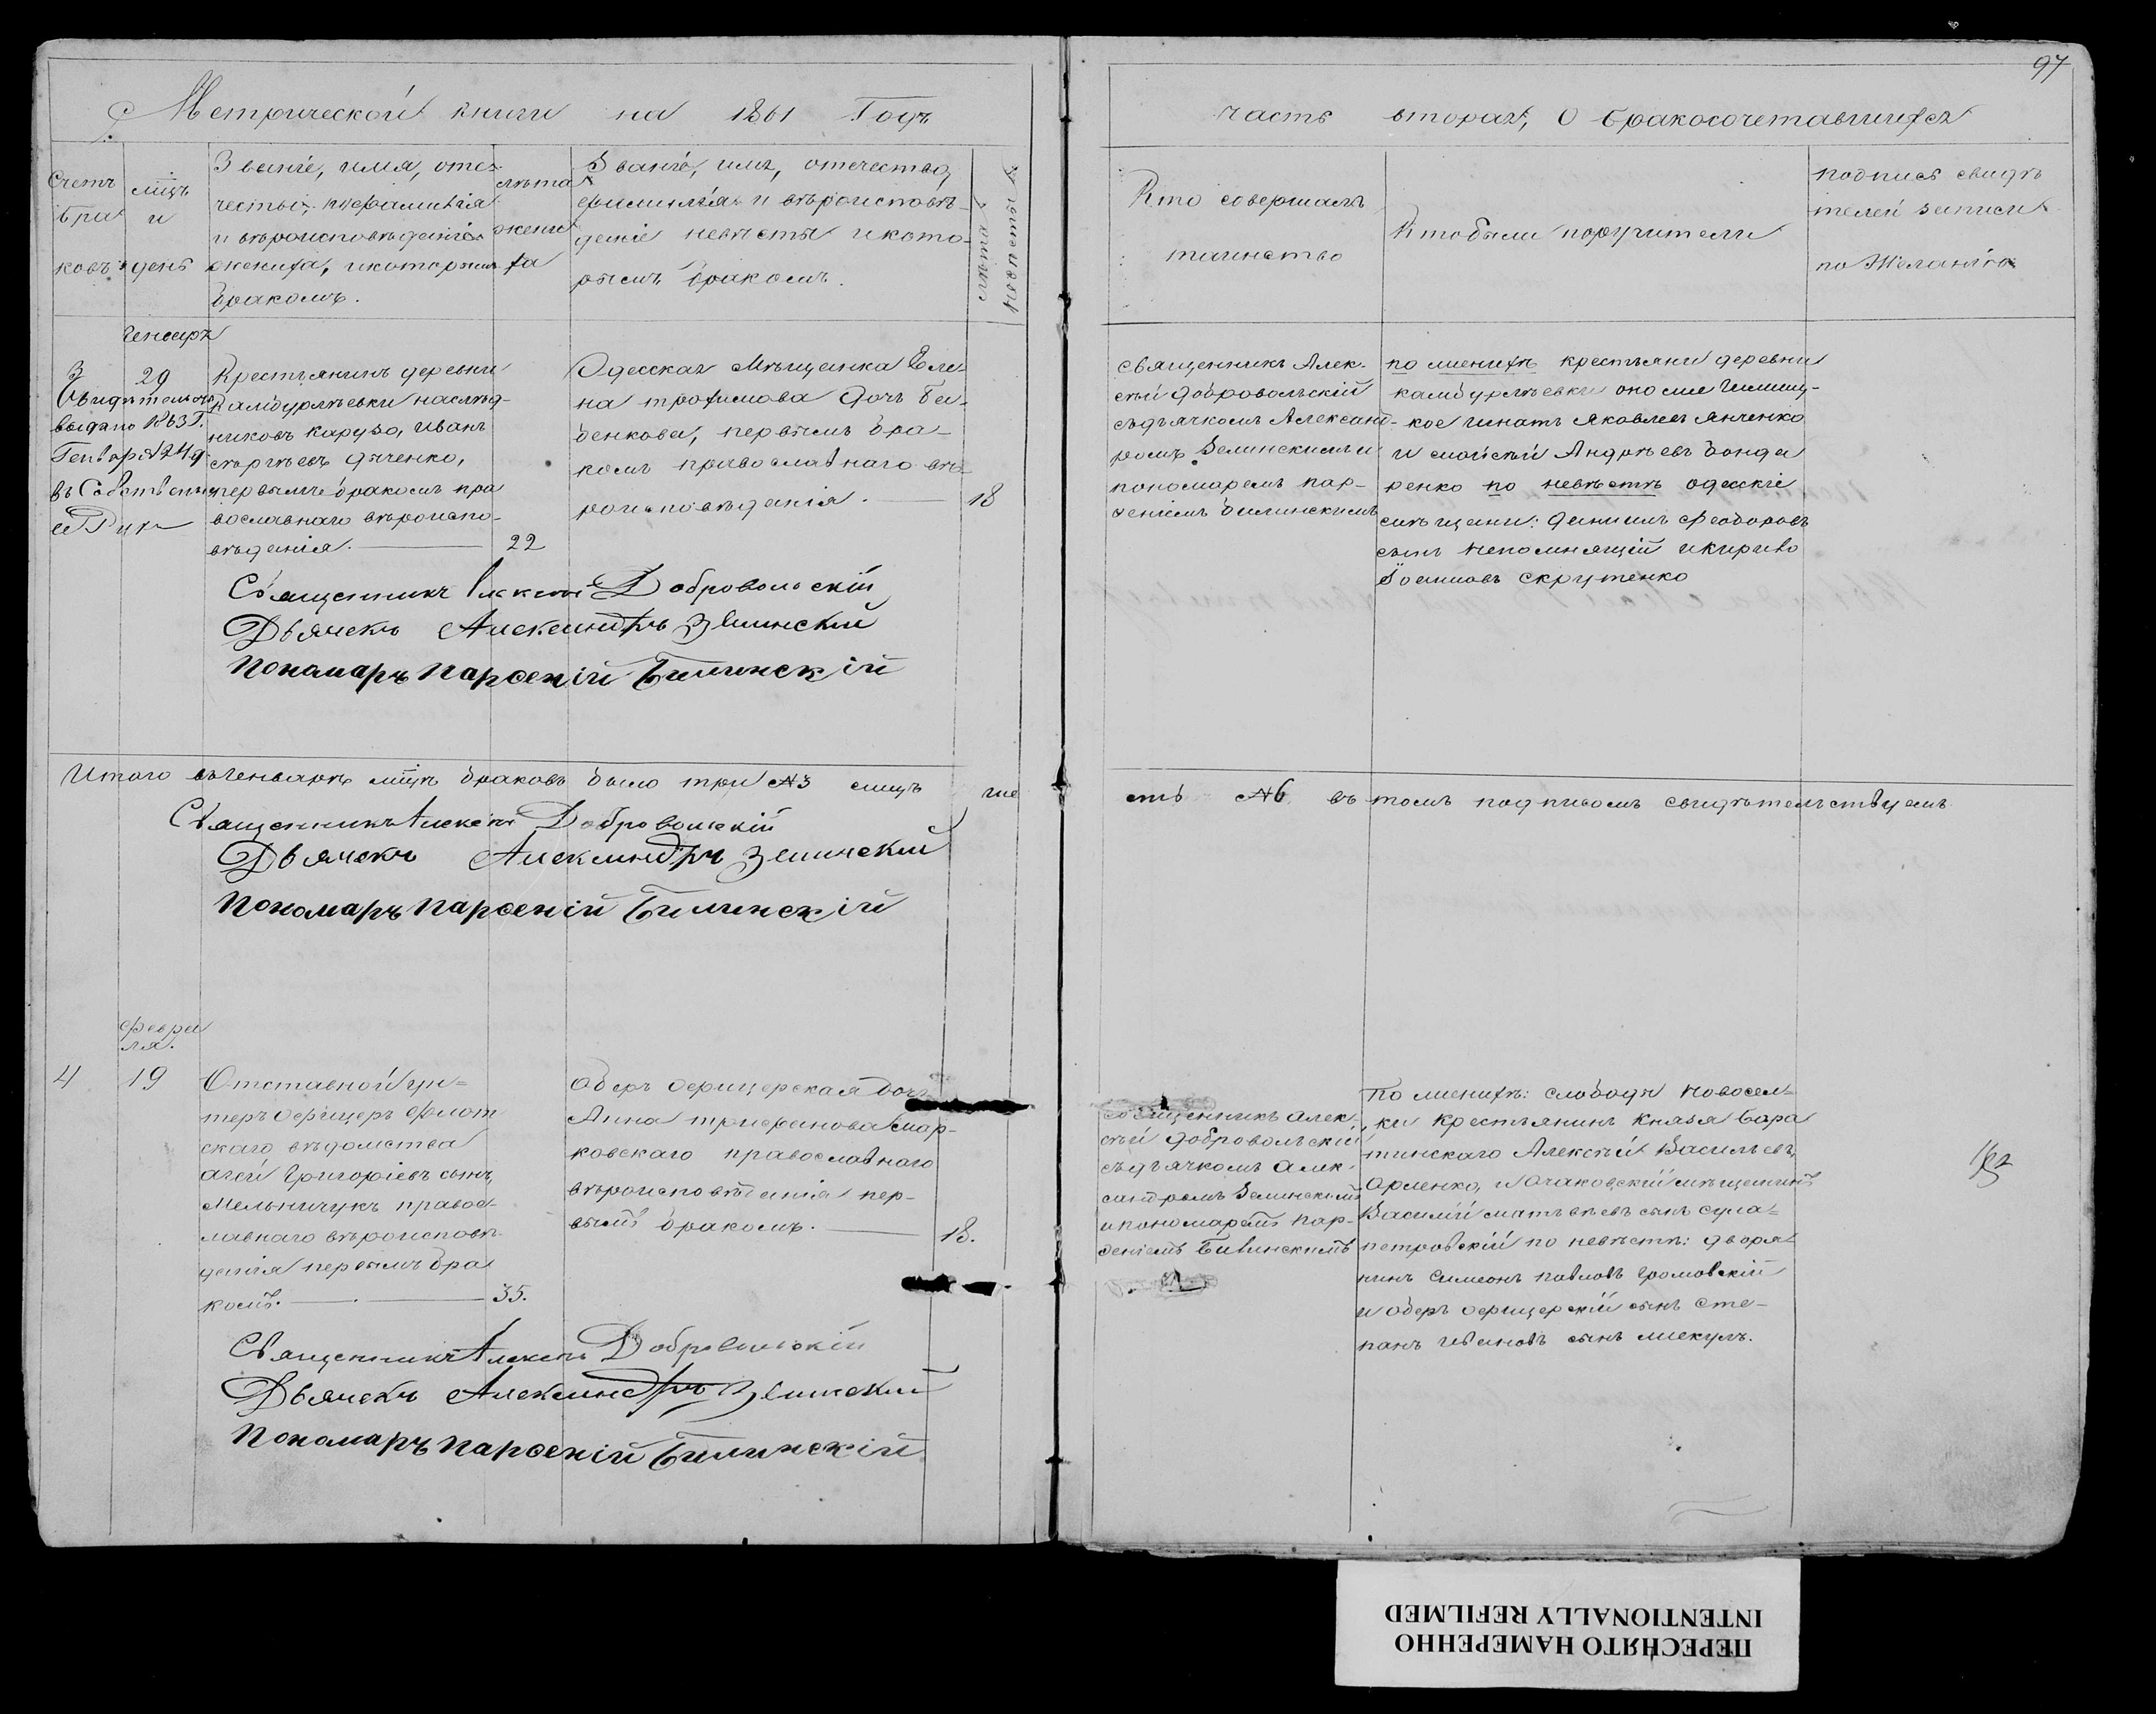 97
Метрической книги на 1861 Годъ
часть вторая, О бракосочетавшихся
Счетъ
бра
ковъ
мсцъ
и
день
Званіе, имя, отe-
чество, и фамилія
и вѣроисповѣданіе
жениха, и которымъ
бракомъ.
лѣта
жени
ха
Званіе, имя, отечество,
фамилія и вѣроисповѣ-
даніе невѣсты и кото-
рымъ бракомъ.
лѣта
невѣсты
Кто совершалъ
таинство
Кто были поручители
подпись свидѣ
телей записи
по Желанію
Генваръ
3
29
Свидѣтельство
выдано 1863 Г.
Генваря 24 д
Крестьянинъ деревни
Камбурлѣевки наслѣд-
никовъ Карузо, Иванъ
Сергѣевъ Дяченко,
первымъ бракомъ пра
вославнаго вѣроиспо-
вѣданія.
22
Одесская Мѣщанка Еле-
на трофимова Дочь Ба-
бенкова, первымъ бра-
комъ православнаго вѣ-
роисповѣданія.
18
священникъ Алек-
сѣй Добровольскій
съ дьячкомъ Александ-
ромъ Зелинскимъ и
пономаремъ пар-
ѳеніемъ билинскимъ
по женихѣ крестьяни деревни
камбурлѣевки оно же Чилиц-
кое Игнатъ Яковлевъ Янченко
и Моисѣй Андреевъ бонда
ренко по невѣстѣ одесскіе
мѣщани: Даниилъ Феодоровъ
сынъ Непомнящій и кирило
Іоанновъ Скрутенко
Священникъ Алексѣй Добровольскій
Дьячекъ Александръ Зелинскій
Пономаръ Парѳеній Билинскій
Итого въ генварѣ мсцѣ браковъ было три №3 лицъ ше
сть №6 въ томъ подписомъ свидѣтельствуемъ
Священникъ Алексѣй Добровольскій
Дьячекъ Александръ Зелинскій
Пономаръ Парѳеній Билинскій
Февра
ля.
4
19
Отставной Ун=
теръ офицеръ Флот
скаго вѣдомства
Григоріевъ сынъ
Мельничукъ правос-
лавнаго вѣроисповѣ-
данія первымъ бра
комъ.
35.
Оберъ офицерская дочь
Анна трифанова Мар-
ковскаго православнаго
вѣроисповѣданія пер-
вымъ бракомъ.
18.
священникъ Алек-
сѣй Добровольскій
съ дьячкомъ Алек-
сандромъ Зелинскимъ
и пономаремъ Пар-
ѳеніемъ Билинскимъ
По женихѣ: слободы Новосел=
ки Крестьянинъ Князя Бара
тинскаго Алексѣй Васильевъ
Орленко, и Очаковскій мѣщанинъ
Василій матвѣевъ сынъ сула=
петровскій по невѣстѣ: дворя
нинъ Симеонъ павловъ Громовскій
и оберъ офицерскій сынъ Сте-
панъ Ивановъ сынъ
Священникъ Алексѣй Добровольскій
Дьячекъ Александръ Зелинскій
Пономаръ Парѳеній Билинскій
ПЕРЕСНЯТО НАМЕРЕННО
INTENTIONALLY REFILMED